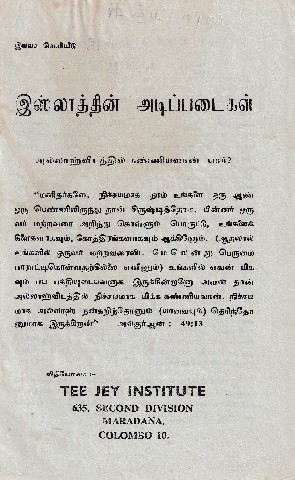 இலவச வெளியீடு
இஸ்லாத்தின் அடிப்படைகள்
அல்லாஹ்விடத்தில் கண்ணியவான் யார்?
"மனிதர்களே, நிச்சயமாக நாம் உங்களை ஒரு ஆண்
ஒரு பெண்ணிலிருந்து தான் சிருஷ்டித்தோம். பின்னர் ஒரு
வர் மற்றவரை அறிந்து கொள்ளும் பொருட்டு, உங்களைக்
கிளைகளாகவும், கோத்திரங்களாகவும் ஆக்கினோம். (ஆதலால்
உங்களில் ஒருவர் மற்றவரைவிட மேலென்று பெருமை
பாராட்டிக்கொள்வதற்கில்லை எனினும்) உங்களில் எவன் மிக
வும் பய பக்தியுடையவனாக இருக்கின்றானோ அவன் தான்
அல்லாஹ்விடத்தில் நிச்சயமாக மிக்க கண்ணியவான். நிச்சய
மாக அல்லாஹ் நன்கறிந்தோனும் (யாவையும்) தெரிந்தோ
னுமாக இருக்கிறான்" அல்குர்ஆன் : 49:13
விநியோகம் :-
TEE JEY INSTITUTE
635, SECOND DIVISION
MARADANA,
COLOMBO 10.